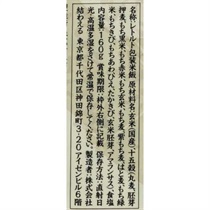 名称:レトルト包装米飯 原材料名:玄米(国産)、十五穀(丸麦、胚芽
押麦、もち黒米、もち赤米、もち玄米、もち麦、紫もち麦、はと麦、もち緑
米、もちきび、もちあわ、ひえ、たかきび、玄米胚芽、アマランサス)、食塩
内容量:160g 賞味期限:枠外右側に記載 保存方法:直射日
光、高温多湿をさけて常温で保存してください。製造者:株式会社
結わえる 東京都千代田区神田錦町3-20アイゼンビル6階